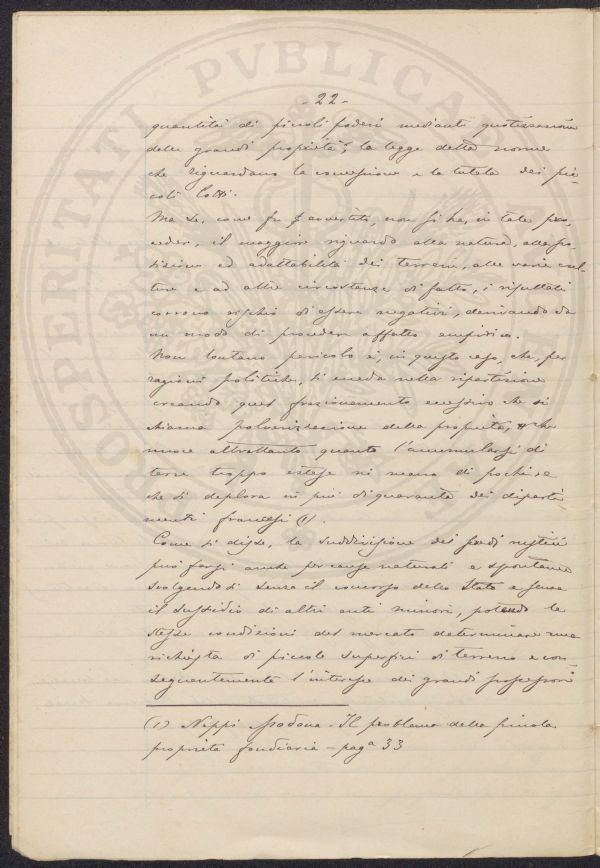 - 22 -
quantità di piccoli poderi mediante quotizzazione
delle grandi proprietà, la legge detta norme
che riguardano la concessione e la tutela dei pic-
coli lotti.
Ma se, come fu avvertito, non si ha, in tale pro-
cedere, il maggiore riguardo alla natura, alla po-
sizione ed adattabilità dei terreni, alle varie cul-
ture e ad altre circostanze di fatto, i risultati
corrono rischio di essere negativi, derivando da
un modo di procedere affatto empirico.
Non lontano pericolo è, in questo caso, che, per
ragioni politiche, si ecceda nella ripartizione
creando quel frazionamento eccessivo che si
chiama polverizzazione della proprietà, che
nuoce altrettanto quanto l'accumularsi di
terre troppo estese in mano di pochi, e
che si deplora in più di quaranta dei diparti
menti francesi (1).
Come si disse, la suddivisione dei fondi rustici
può farsi anche per cause naturali e spontanee
svolgendosi senza il concorso dello Stato e senza
il sussidio di altri enti minori, potendo le
stesse condizioni del mercato determinare una
richiesta di piccole superfici di terreno e con-
seguentemente l'interesse dei grandi possessori
(1) Nippi Modona - Il problema della piccola
proprietà fondiaria - pagª 33
PROSPERITATI PVBLICAE